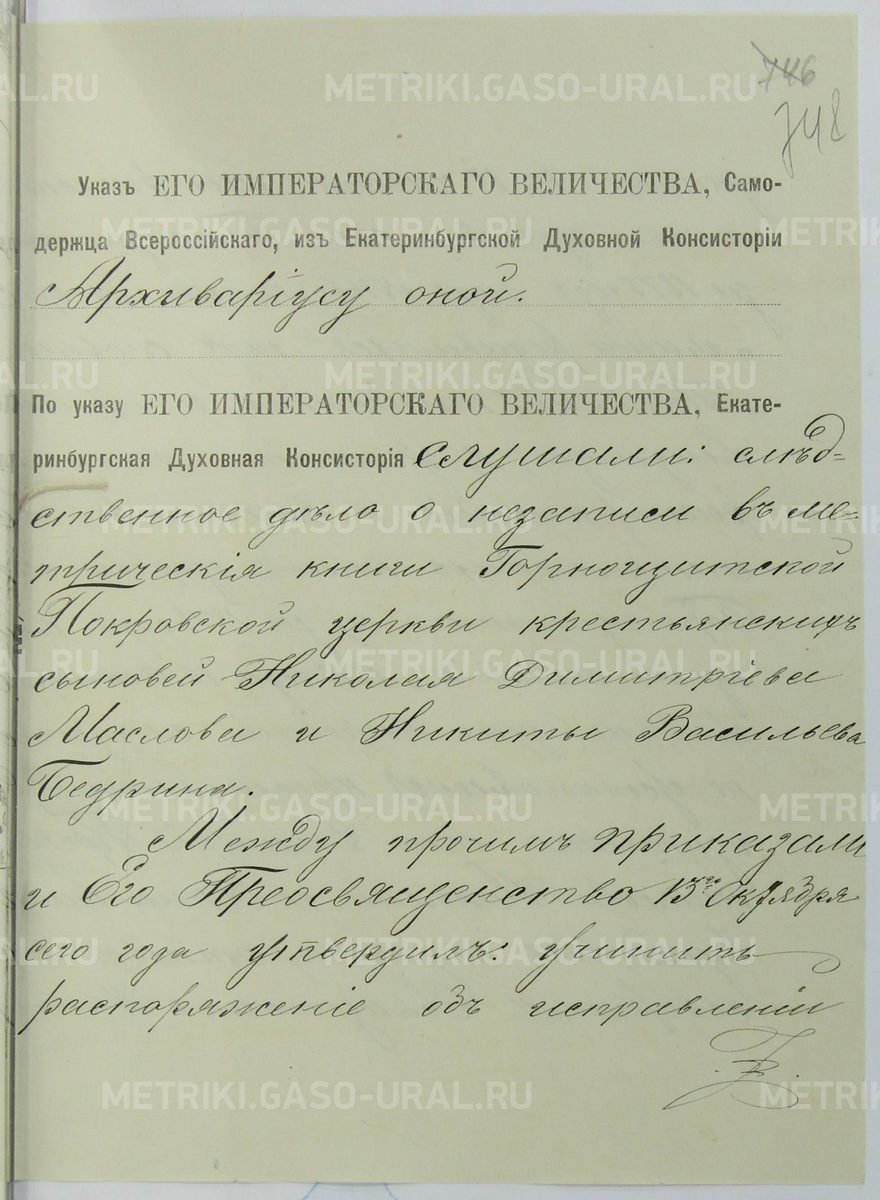 746
748
Указъ ЕГО ИМПЕРАТОРСКАГО ВЕЛИЧЕСТВА, Само-
держца Всероссійскаго, изъ Екатеринбургской Духовной Консисторіи
Архиваріусу оной.
По указу ЕГО ИМПЕРАТОРСКАГО ВЕЛИЧЕСТВА, Екате-
ринбургская Духовная Консисторія слушали: слѣд=
ственное дѣло о незаписи въ ме=
трическія книги Горнощитской
Покровской церкви крестьянскихъ
сыновей Николая Димитріева
Маслова и Никиты Васильева
Бедрина.
Между прочимъ приказали
и Его Преосвященство 13го Октября
сего года утвердилъ: учинить
распоряженіе объ исправленіи
METRIKI.GASO-URAL.RU